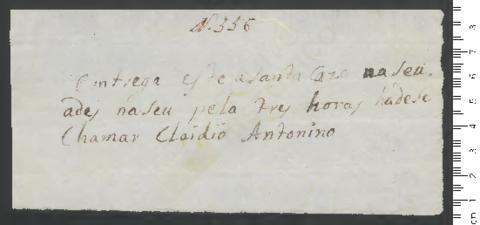 N. 336
Entrega este a santa Caza naseu
ades naseu pela tres horas hádese
Chamar Claidio Antonino
cm 1 2 3 4 5 6 7 8